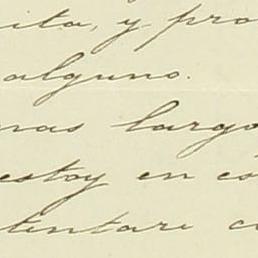 ita, y pro
alguno.
mas largo
estoy en co
tentare c